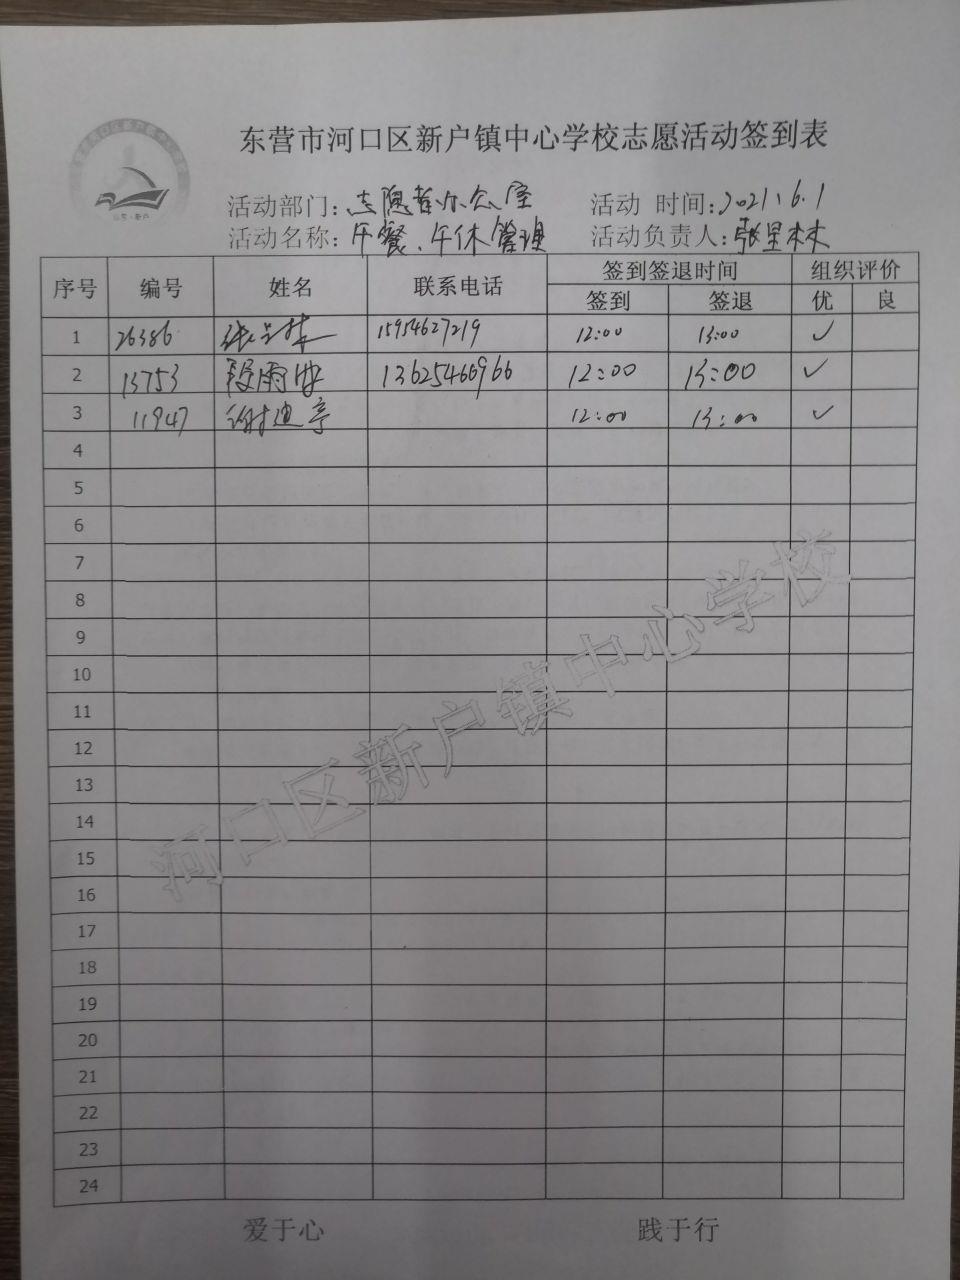 东营市河口区新户镇中心学校志愿活动签到表
活动部门：志愿者办公室 活动 时间：2021.6.1
活动名称：午餐、午休管理 活动负责人：张星林
序号 编号 姓名 联系电话 签到签退时间 组织评价
签到 签退 优 良
1 26386 15954627219 12:00 13:00 ✓
2 13753 段雨 13625466966 12:00 13:00 ✓
3 11947 谢迪亭 12:00 13:00 ✓
4
5
6
7
8
9
10
11
12
13
14
15
16
17
18
19
20
21
22
23
24
河口区新户镇中心学校
爱于心 践于行